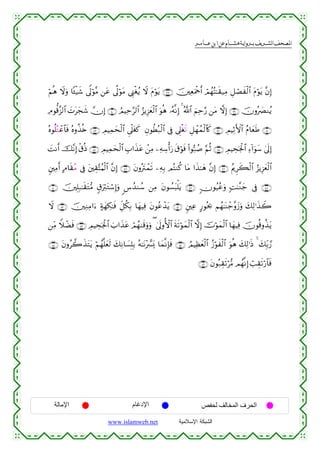 المصحف الشريف برواية هشام عن ابن عامر
إِنَّ يَوْمَ ٱلْفَصْلِ مِيقَٰتُهُمْ أَجْمَعِينَ يَوْمَ لَا يُغْنِى مَوْلًى عَن مَّوْلًى شَيْـًٔا وَلَا هُمْ
يُنصَرُونَ إِلَّا مَن رَّحِمَ ٱللَّهُ إِنَّهُۥ هُوَ ٱلْعَزِيزُ ٱلرَّحِيمُ إِنَّ شَجَرَتَ ٱلزَّقُّومِ
طَعَامُ ٱلْأَثِيمِ كَٱلْمُهْلِ تَغْلِى فِى ٱلْبُطُونِ كَغَلْىِ ٱلْحَمِيمِ خُذُوهُ فَٱعْتُلُوهُ
إِلَىٰ سَوَآءِ ٱلْجَحِيمِ ثُمَّ صُبُّوا۟ فَوْقَ رَأْسِهِۦ مِنْ عَذَابِ ٱلْحَمِيمِ ذُقْ إِنَّكَ أَنتَ
ٱلْعَزِيزُ ٱلْكَرِيمُ إِنَّ هَٰذَا مَا كُنتُم بِهِۦ تَمْتَرُونَ إِنَّ ٱلْمُتَّقِينَ فِى مُقَامٍ أَمِينٍ
فِى جَنَّٰتٍ وَعُيُونٍ يَلْبَسُونَ مِن سُندُسٍ وَإِسْتَبْرَقٍ مُّتَقَٰبِلِينَ
كَذَٰلِكَ وَزَوَّجْنَٰهُم بِحُورٍ عِينٍ يَدْعُونَ فِيهَا بِكُلِّ فَٰكِهَةٍ ءَامِنِينَ لَا
يَذُوقُونَ فِيهَا ٱلْمَوْتَ إِلَّا ٱلْمَوْتَةَ ٱلْأُولَىٰ وَوَقَىٰهُمْ عَذَابَ ٱلْجَحِيمِ فَضْلًا مِّن
رَّبِّكَ ذَٰلِكَ هُوَ ٱلْفَوْزُ ٱلْعَظِيمُ فَإِنَّمَا يَسَّرْنَٰهُ بِلِسَانِكَ لَعَلَّهُمْ يَتَذَكَّرُونَ
فَٱرْتَقِبْ إِنَّهُم مُّرْتَقِبُونَ
الحرف المخالف لحفص الإدغام الإمالة
www.islamweb.net الشبكة الإسلامية